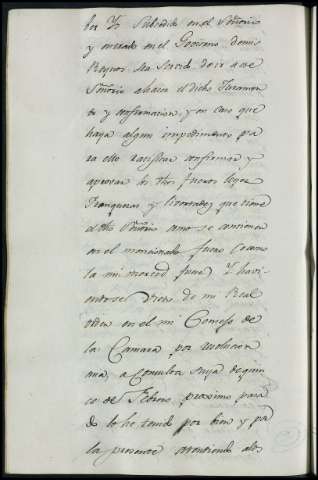 bor Yo Subcedido en el Señorio
y entrado en el Govierno de mis
Reynos sea servido de ir a ese
Señorio a hacer el dicho Juramen
to y confirmacion, y en caso que
haya algun impedimento pa
ra ello ratificar confirmar y
aprovar los dhos fueros leyes
franquezas y livertades que tiene
el dho Señorio como se contiene
en el mencionado fuero (como
la mi merced fuere) Y havi
endose visto de mi Real
orden en el mi Consejo de
la Camara por resolucion
mia, a Consulta suya de quin
ce de Febrero proximo pasa
do lo he tenido por bien y por
la presente atendiendo a los